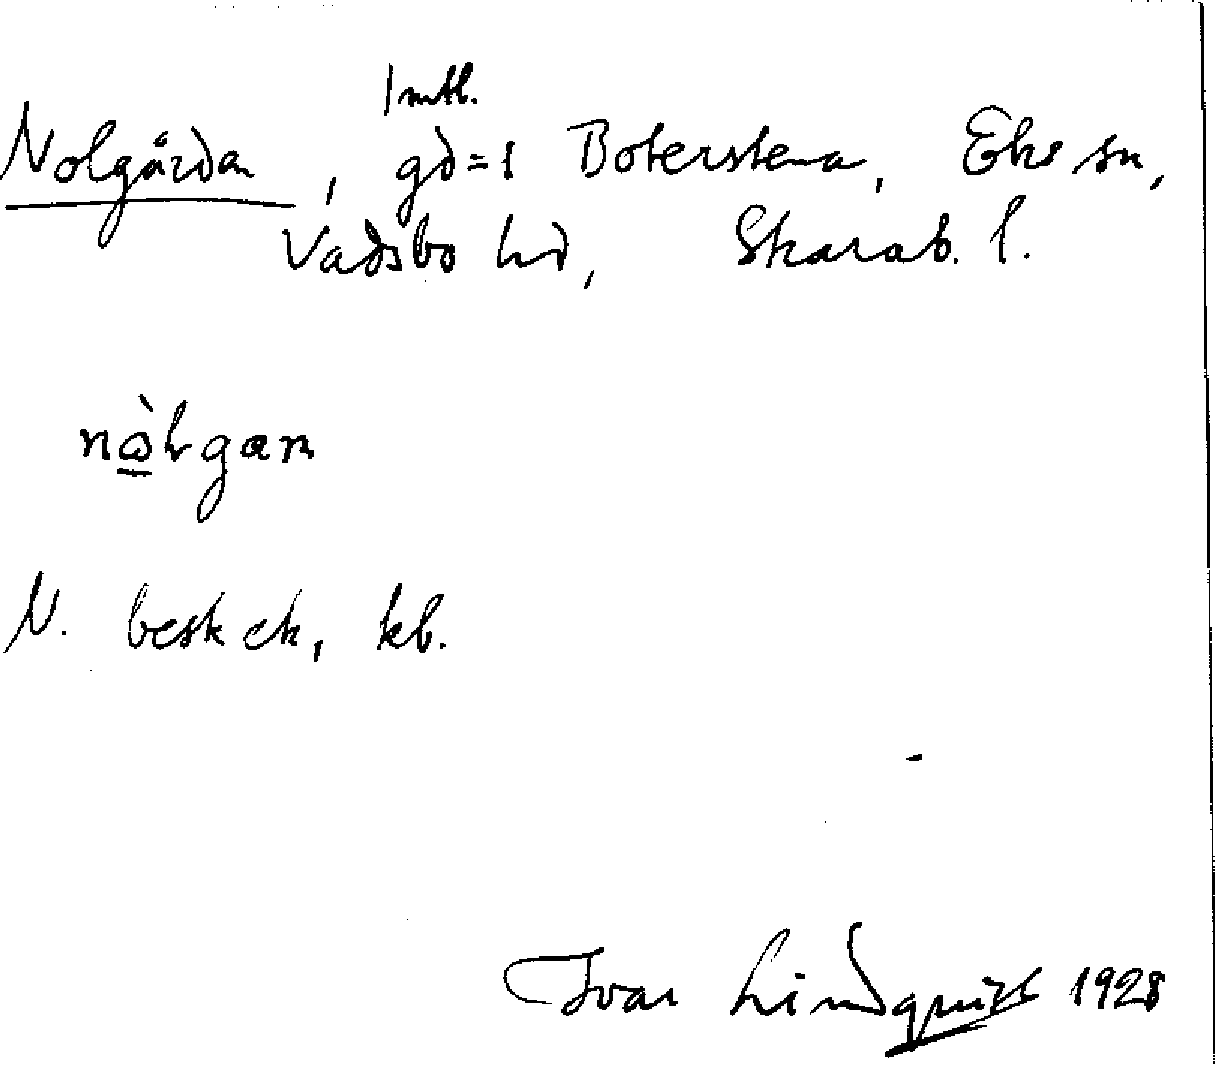 1 mtl.
Nolgårdan, gd=1 Boterstena, Eks sn,
Vadsbo hd, Skarab. l.
nɷ̀lgan
N. besk ek, kb.
Ivar Lindquist 1928